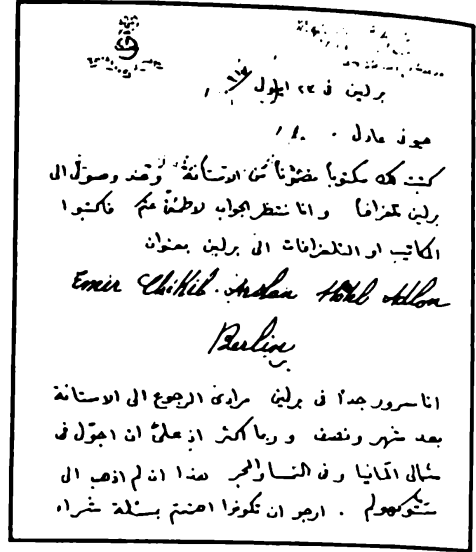 برلين في ٢٣ ايلول
عيوني عادل
كتبت لك مكتوباً مضموناً من الاستانة وعند وصولي الى
برلين تلغرافاً وانا ننتظر الجواب لاطمئن عنكم فاكتبوا
المكاتيب او التلغرافات الى برلين بعنوان
Emir Chikib Arslan Hôtel Adlon
Berlin
برلين
انا مسرور جداً في برلين مرادي الرجوع الى الاستانة
بعد شهر ونصف وربما اكثر اذ عليّ ان اجوّل في
شمالي المانيا وفي النمسا والمجر هذا ان لم اذهب الى
ستوكهولم . ارجو ان تكونوا اهتميتم بمسئلة شراء